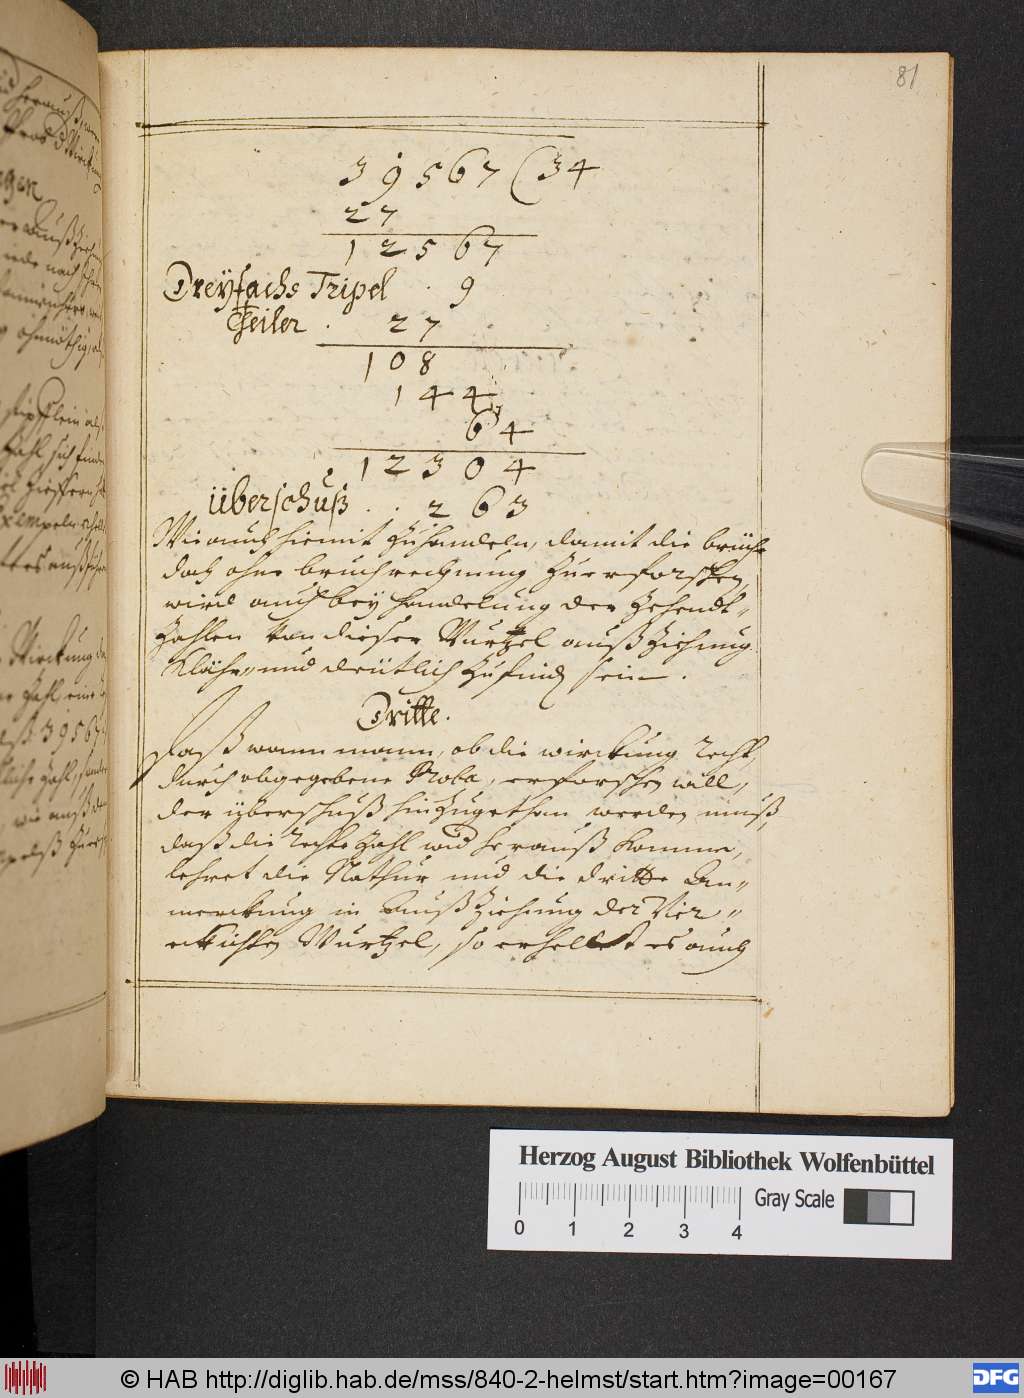 81
39567 (34
27
12567
Dreÿfachs Tripel . 9
Theiler . 27
108
144
64
12304
überschuß . . 263
Wie auch hiemit zuhandeln, damit die brüche
doch ohne bruchrechnung zuerforschen,
wird auch beÿ handelung der Zehendt„
Zahlen von dieser Wurtzel außziehung
klahr und deütlich zufinden sein .
Dritte.
Daß wann mann, ob die wirckung recht,
durch obgegebene Proba, erforschen will,
der überschuß hinzugethan werden muß,
daß die rechte Zahl wid herauß komme,
lehret die Nathur und die dritte An„
merckung in Außziehung der Vier„
eckichten Wurtzel, so erhellet es auch
Herzog August Bibliothek Wolfenbüttel
Gray Scale
0 1 2 3 4
© HAB http://diglib.hab.de/mss/840-2-helmst/start.htm?image=00167
DFG